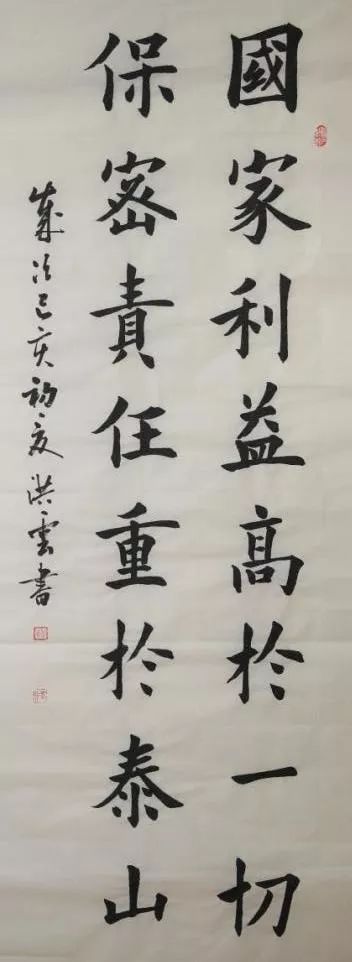 國家利益高於一切
保密責任重於泰山
歲次己亥初夏洪雲書